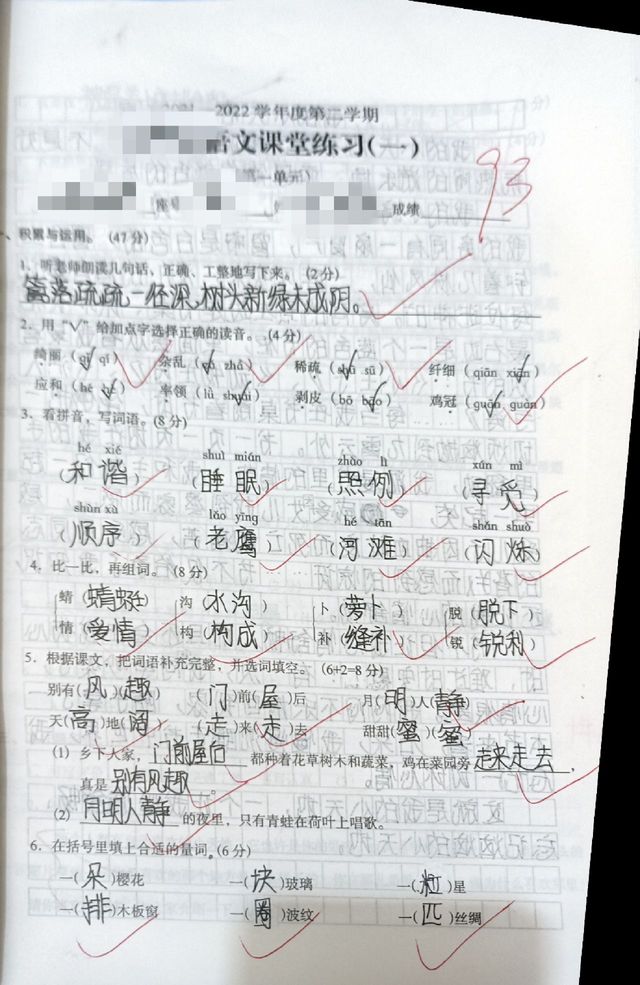 2022学年度第二学期
语文课堂练习(一)
第一单元)
93
成绩
积累与运用。(47分)
1、听老师朗读几句话，正确、工整地写下来。(2分)
篱落疏疏一径深,树头新绿未成阴。
2．用"√"给加点字选择正确的读音。(4分)
绮丽(qǐ qí) 杂乱(zá zhá) 稀疏(shū sū) 纤细(qiān xiān)
应和(hé hè) 率领(lǜ shuài) 剥皮(bō bāo) 鸡冠(guān guàn)
3．看拼音，写词语。(8分)
hé xié shuì mián zhào lì xún mì
(和谐) (睡眠) (照例) (寻觅)
shùn xù lǎo yīng hé tān shǎn shuò
(顺序) (老鹰) (河滩) (闪烁)
4．比一比，再组词。(8分)
蜻(蜻蜓) 沟(水沟) 卜(萝卜) 脱(脱下)
情(爱情) 构(构成) 补(缝补) 锐(锐利)
5．根据课文，把词语补充完整，并选词填空。(6+2=8分)
别有(风)(趣) (门)前(屋)后 月(明)人(静)
天(高)地(阔) (走)来(走)去 甜甜(蜜)(蜜)
(1) 乡下人家，门前屋后都种着花草树木和蔬菜，鸡在菜园旁走来走去，
真是别有风趣。
(2) 月明人静的夜里，只有青蛙在荷叶上唱歌。
6．在括号里填上合适的量词。(6分)
一(朵)樱花 一(块)玻璃 一(粒)星
一(排)木板窗 一(圈)波纹 一(匹)丝绸